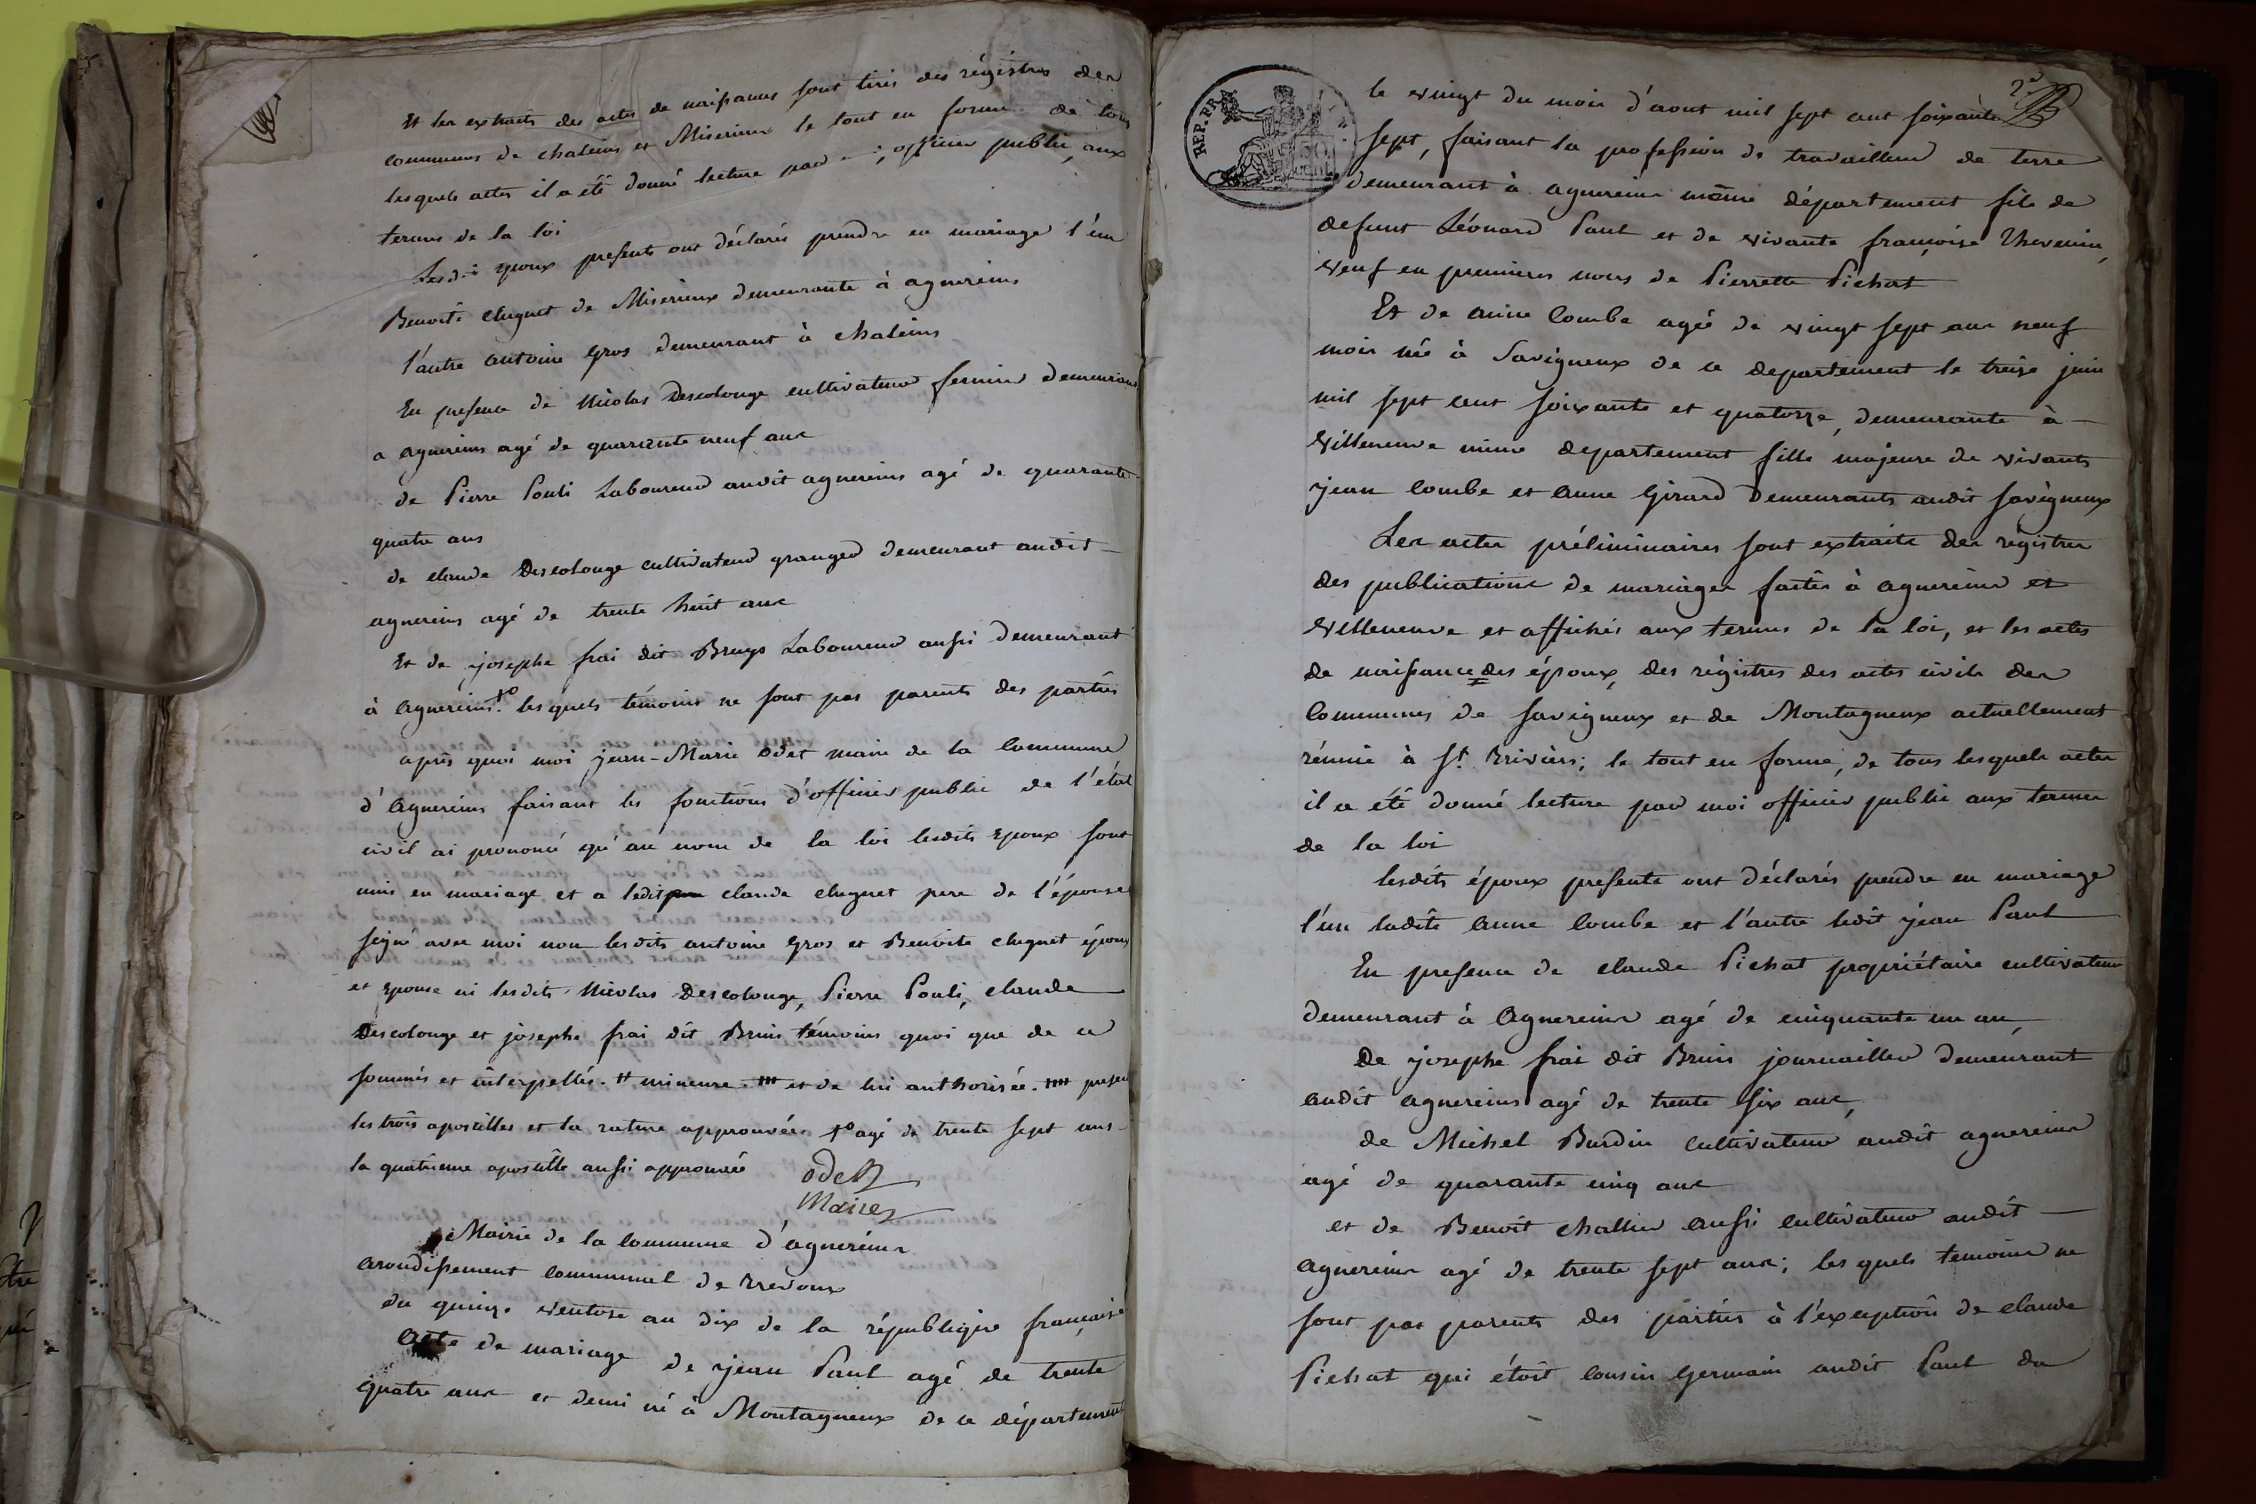 Et les extraits des actes de naissances sont tirés des régistres des
communes de chaleins et Miserieux le tout en forme de tous
lesquels actes il a été donné lecture par officier public, aux
termes de la loi
Lesdits epoux presents ont déclarés prendre en mariage l'un
Benoite cluguet de Miserieux demeurante à agnereins
l'autre antoine gros demeurant à chaleins
En presence de Nicolas Descolonge cultivateur fermier demeurant
a agnereins agé de quarante neuf ans
de Pierre Pouli Laboureur audit agnereins agé de quarante
quatre ans
de claude Descolonge cultivateur granger demeurant audit
agnereins agé de trente huit ans
Et de josephe frai dit Bruys Laboureur aussi demeurant
à agnereins. lesquels témoins ne sont pas parents des parties
après quoi moi jean-Marie odet maire de la commune
d'agnereins faisant les fonctions d'officier public de l'état
civil ai prononcé qu'au nom de la loi lesdits epoux sont
unis en mariage et a ledit claude cluguet pere de l'épouse
signé avec moi non lesdits antoine gros et Benoite cluguet époux
et epouse ni lesdits Nicolas Descolonge, Pierre Pouli, claude
Descolonge et josephe frai dit Bruis témoins quoi que de ce
sommés et interpellés. # mineure. et de lui authorisée.
les trois apostilles et la rature approuvées agé de trente sept ans
la quatrieme apostille aussi approuvée
odet
Maire
Mairie de la commune d'agnereins
arondissement communal de Trevoux
du quinze ventose an dix de la république française
acte de mariage de jean Paul agé de trente
quatre ans et demi né à Montagneux de ce département
REP. FRA.
2e
le vingt du mois d'aout mil sept cent soixante
sept, faisant la profession de travailleur de terre
demeurant à agnereins même département fils de
defunt Léonard Paul et de vivante françoise Thevenin,
veuf en premieres noces de Pierrette Pichat
Et de anne Combe agée de vingt sept ans neuf
mois née à Savigneux de ce departement le treize juin
mil sept cent soixante et quatorze, demeurante à
Villeneuve même departement fille majeure de vivants
jean Combe et anne Girard demeurants audit savigneux
Les actes préliminaires sont extraits des régistres
des publications de mariages faites à agnereins et
Villeneuve et affichés aux termes de la loi, et les actes
de naissance des époux, des régistres des actes civils des
communes de savigneux et de Montagneux actuellement
réunie à St. Triviers; le tout en forme, de tous lesquels actes
il a été donné lecture par moi officier public aux termes
de la loi
lesdits époux presents ont déclarés prendre en mariage
l'un ladite anne Combe et l'autre ledit jean Paul
En presence de claude Pichat propriétaire cultivateur
demeurant à agnereins agé de cinquante un an,
De josephe frai dit Bruis journaillier demeurant
audit agnereins agé de trente six ans,
de Michel Burdin cultivateur audit agnereins
agé de quarante cinq ans
et de Benoit challier aussi cultivateur audit
agnereins agé de trente sept ans; lesquels temoins ne
sont pas parents des parties à l'exception de claude
Pichat qui étoit cousin germain audit Paul du